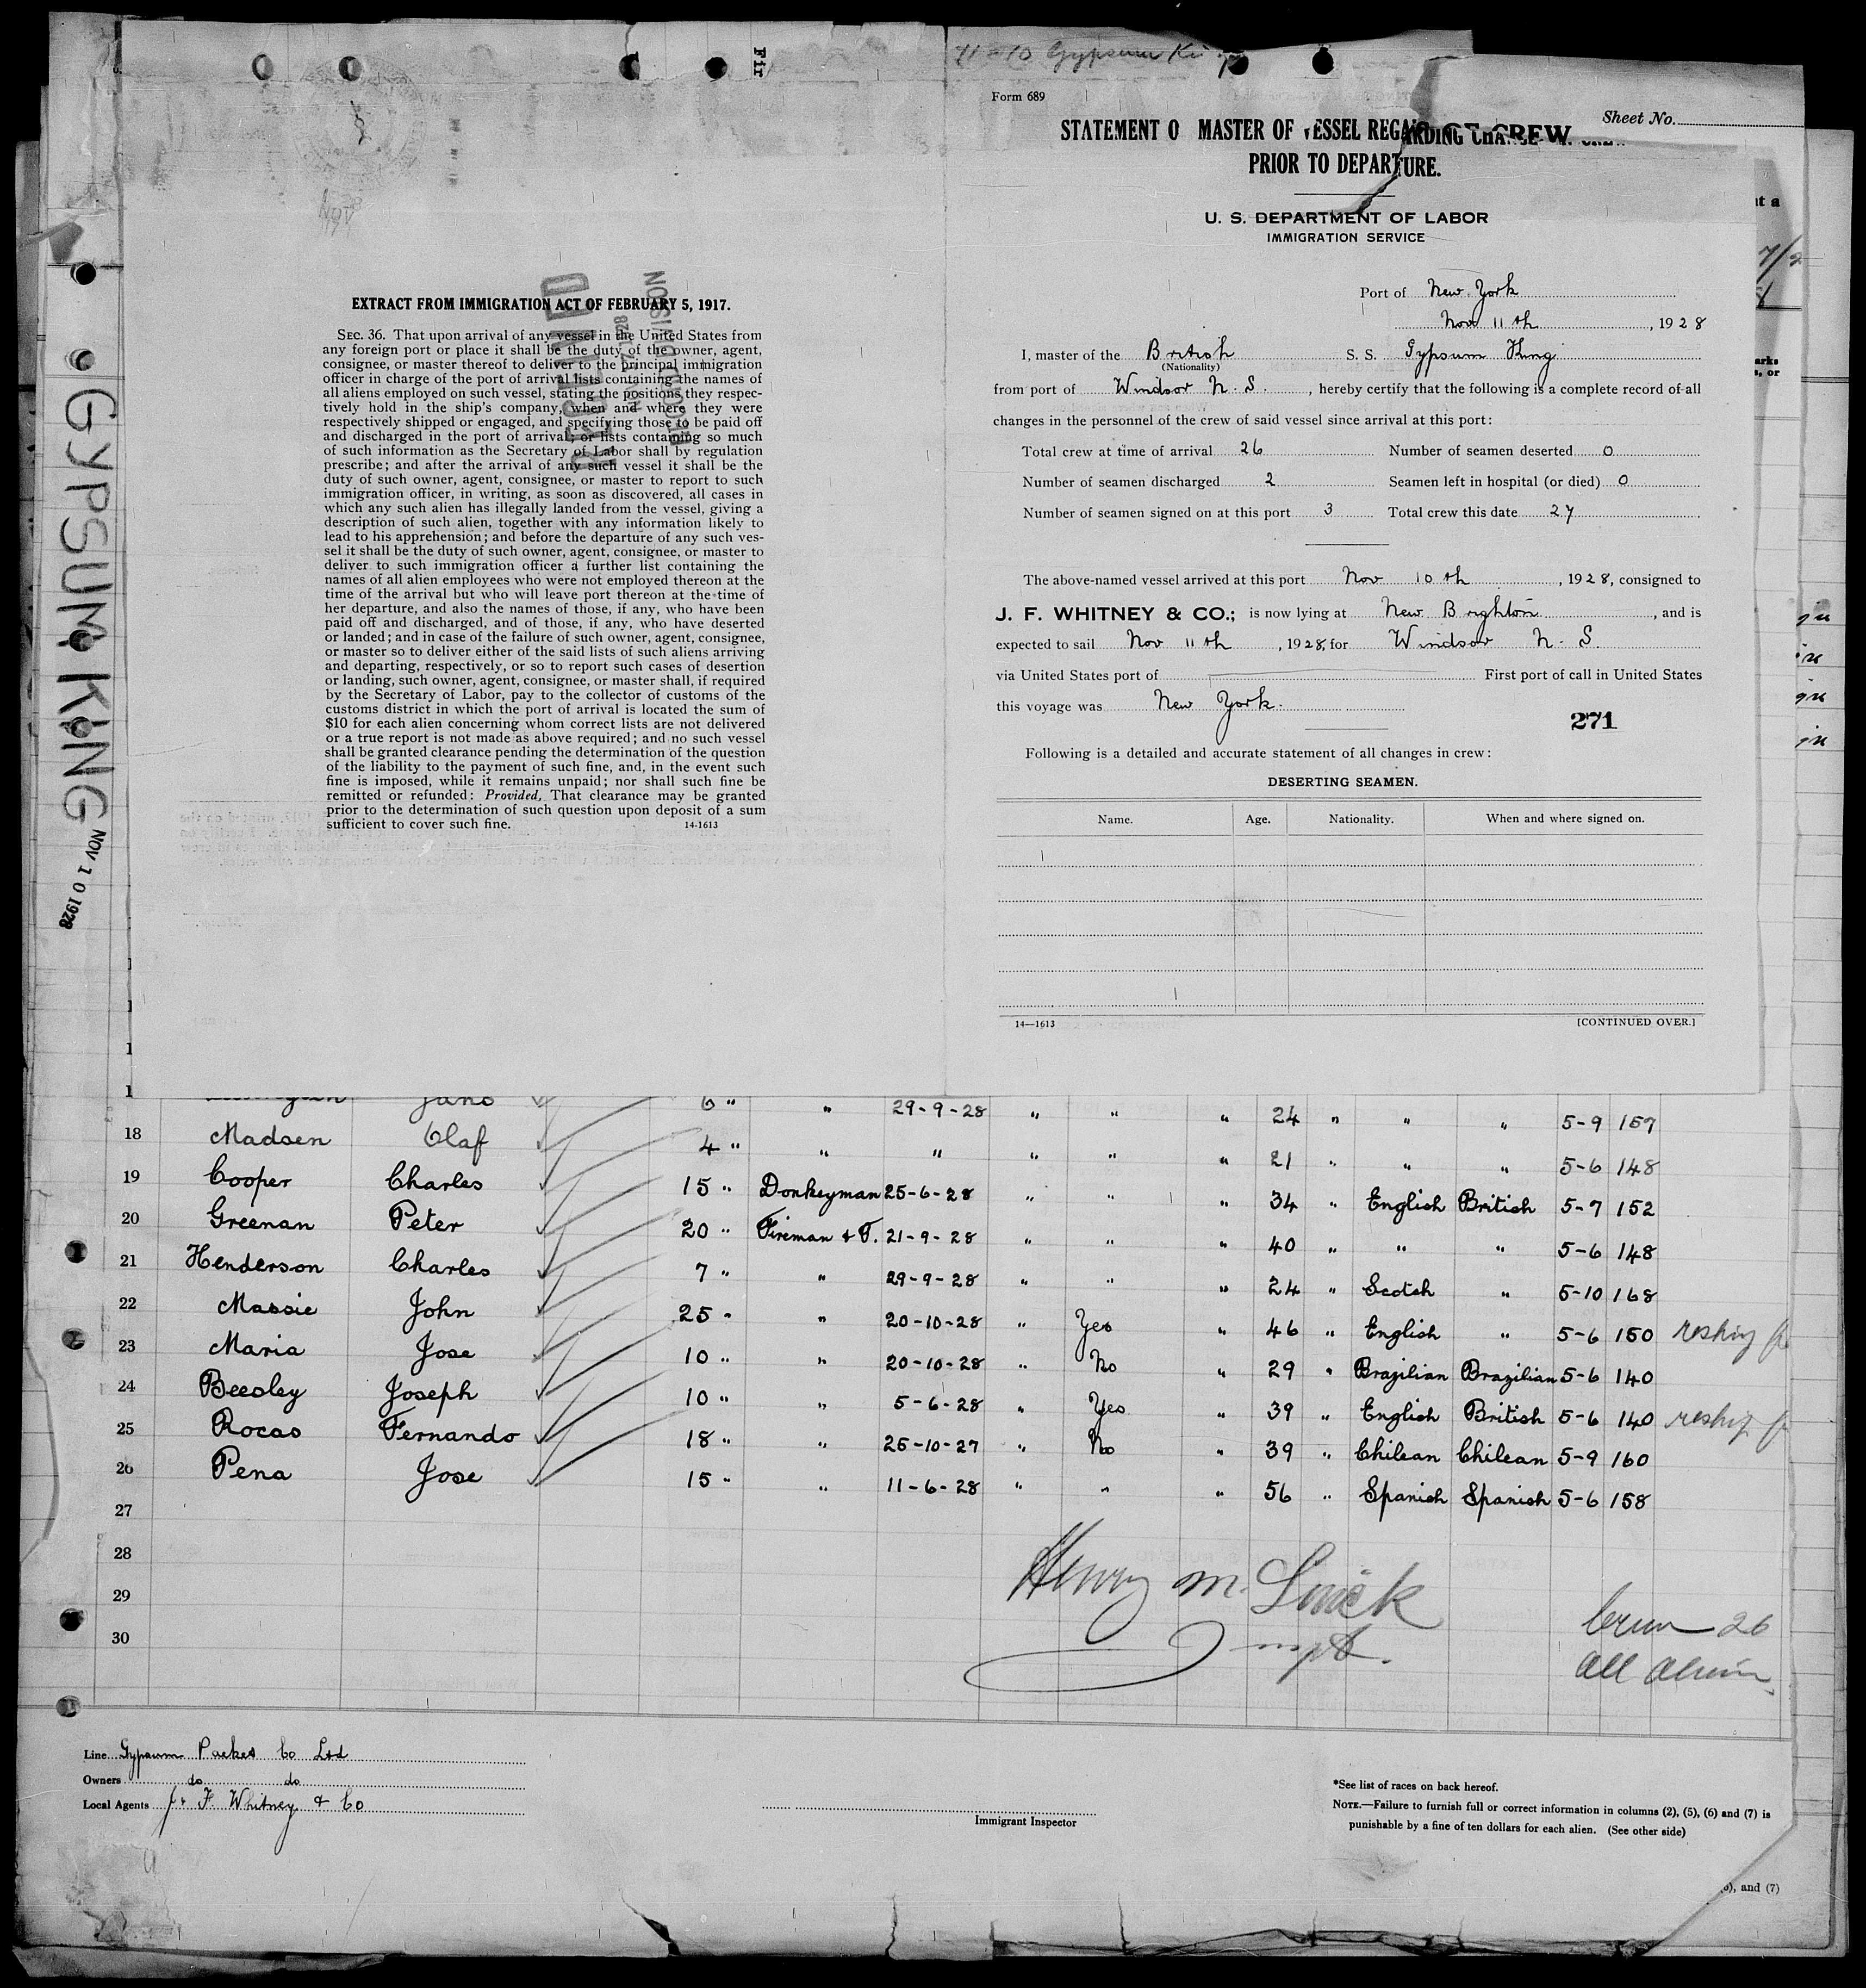 GYPSUM KING
NOV 10 1928
Fir
11-10 Gypsum Ki
Form 689
Sheet No.
STATEMENT O MASTER OF VESSEL REGARDING CHANGE CREW
PRIOR TO DEPARTURE.
U. S. DEPARTMENT OF LABOR
IMMIGRATION SERVICE
NOV
RECEIVED
EXTRACT FROM IMMIGRATION ACT OF FEBRUARY 5, 1917.
SEC. 36. That upon arrival of any vessel in the United States from
any foreign port or place it shall be the duty of the owner, agent,
consignee, or master thereof to deliver to the principal immigration
officer in charge of the port of arrival lists containing the names of
all aliens employed on such vessel, stating the positions they respec-
tively hold in the ship's company, when and where they were
respectively shipped or engaged, and specifying those to be paid off
and discharged in the port of arrival; or lists containing so much
of such information as the Secretary of Labor shall by regulation
prescribe; and after the arrival of any such vessel it shall be the
duty of such owner, agent, consignee, or master to report to such
immigration officer, in writing, as soon as discovered, all cases in
which any such alien has illegally landed from the vessel, giving a
description of such alien, together with any information likely to
lead to his apprehension; and before the departure of any such ves-
sel it shall be the duty of such owner, agent, consignee, or master to
deliver to such immigration officer a further list containing the
names of all alien employees who were not employed thereon at the
time of the arrival but who will leave port thereon at the time of
her departure, and also the names of those, if any, who have been
paid off and discharged, and of those, if any, who have deserted
or landed; and in case of the failure of such owner, agent, consignee,
or master so to deliver either of the said lists of such aliens arriving
and departing, respectively, or so to report such cases of desertion
or landing, such owner, agent, consignee, or master shall, if required
by the Secretary of Labor, pay to the collector of customs of the
customs district in which the port of arrival is located the sum of
$10 for each alien concerning whom correct lists are not delivered
or a true report is not made as above required; and no such vessel
shall be granted clearance pending the determination of the question
of the liability to the payment of such fine, and, in the event such
fine is imposed, while it remains unpaid; nor shall such fine be
remitted or refunded: Provided, That clearance may be granted
prior to the determination of such question upon deposit of a sum
sufficient to cover such fine. 14-1613
Port of New York
Nov 11th, 1928
I, master of the British S. S. Gypsum King
(Nationality)
from port of Windsor N. S., hereby certify that the following is a complete record of all
changes in the personnel of the crew of said vessel since arrival at this port:
Total crew at time of arrival 26 Number of seamen deserted 0
Number of seamen discharged 2 Seamen left in hospital (or died) 0
Number of seamen signed on at this port 3 Total crew this date 27
The above-named vessel arrived at this port Nov 10th, 1928, consigned to
J. F. WHITNEY & CO.; is now lying at New Brighton, and is
expected to sail Nov 11th, 1928, for Windsor N. S.
via United States port of First port of call in United States
this voyage was New York.
271
Following is a detailed and accurate statement of all changes in crew:
DESERTING SEAMEN.
Name. Age. Nationality. When and where signed on.
14—1613 [CONTINUED OVER.]
6 " " 29-9-28 " " " 24 " " " 5-9 157
18 Madsen Olaf 4 " " " " " " 21 " " " 5-6 148
19 Cooper Charles 15 " Donkeyman 25-6-28 " " " 34 " English British 5-7 152
20 Greenan Peter 20 " Fireman & T. 21-9-28 " " " 40 " " " 5-6 148
21 Henderson Charles 7 " " 29-9-28 " " " 24 " Scotch " 5-10 168
22 Massie John 25 " " 20-10-28 " Yes " 46 " English " 5-6 150 reship
23 Maria Jose 10 " " 20-10-28 " No " 29 " Brazilian Brazilian 5-6 140
24 Beesley Joseph 10 " " 5-6-28 " Yes " 39 " English British 5-6 140 reship
25 Rocas Fernando 18 " " 25-10-27 " No " 39 " Chilean Chilean 5-9 160
26 Pena Jose 15 " " 11-6-28 " " " 56 " Spanish Spanish 5-6 158
27
28
29
30
Henry M.
Crew 26
All Alien
Line Gypsum Packet Co Ltd
Owners do do
Local Agents J. F. Whitney & Co
Immigrant Inspector
*See list of races on back hereof.
NOTE.—Failure to furnish full or correct information in columns (2), (5), (6) and (7) is
punishable by a fine of ten dollars for each alien. (See other side)
), and (7)